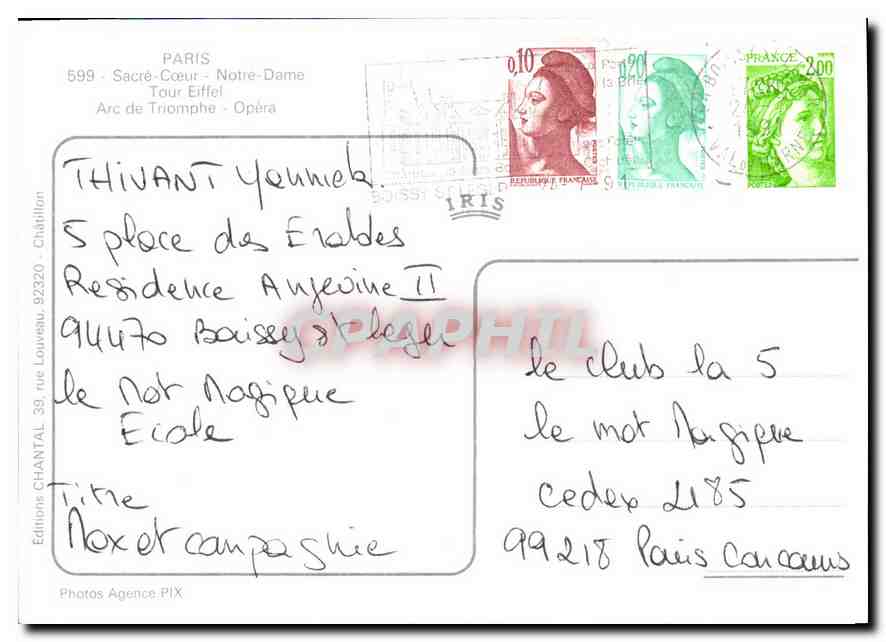 PARIS
599 - Sacré-Cœur - Notre-Dame
Tour Eiffel
Arc de Triomphe - Opéra
0,10
REPUBLIQUE FRANÇAISE
POSTES
0,20
REPUBLIQUE FRANÇAISE
FRANCE 2,00
POSTES
BOISSY ST LEGER
IRIS
THIVANT Yannick
5 place des Eraldes
Residence Angevine II
94470 Boissy st leger
le Mot Magique
Ecole
Titre
Max et campagnie
le club la 5
le mot Magique
cedex 2185
99218 Paris Concours
Editions CHANTAL 39, rue Louveau, 92320 - Châtillon
Photos Agence PIX
CPAPHIL